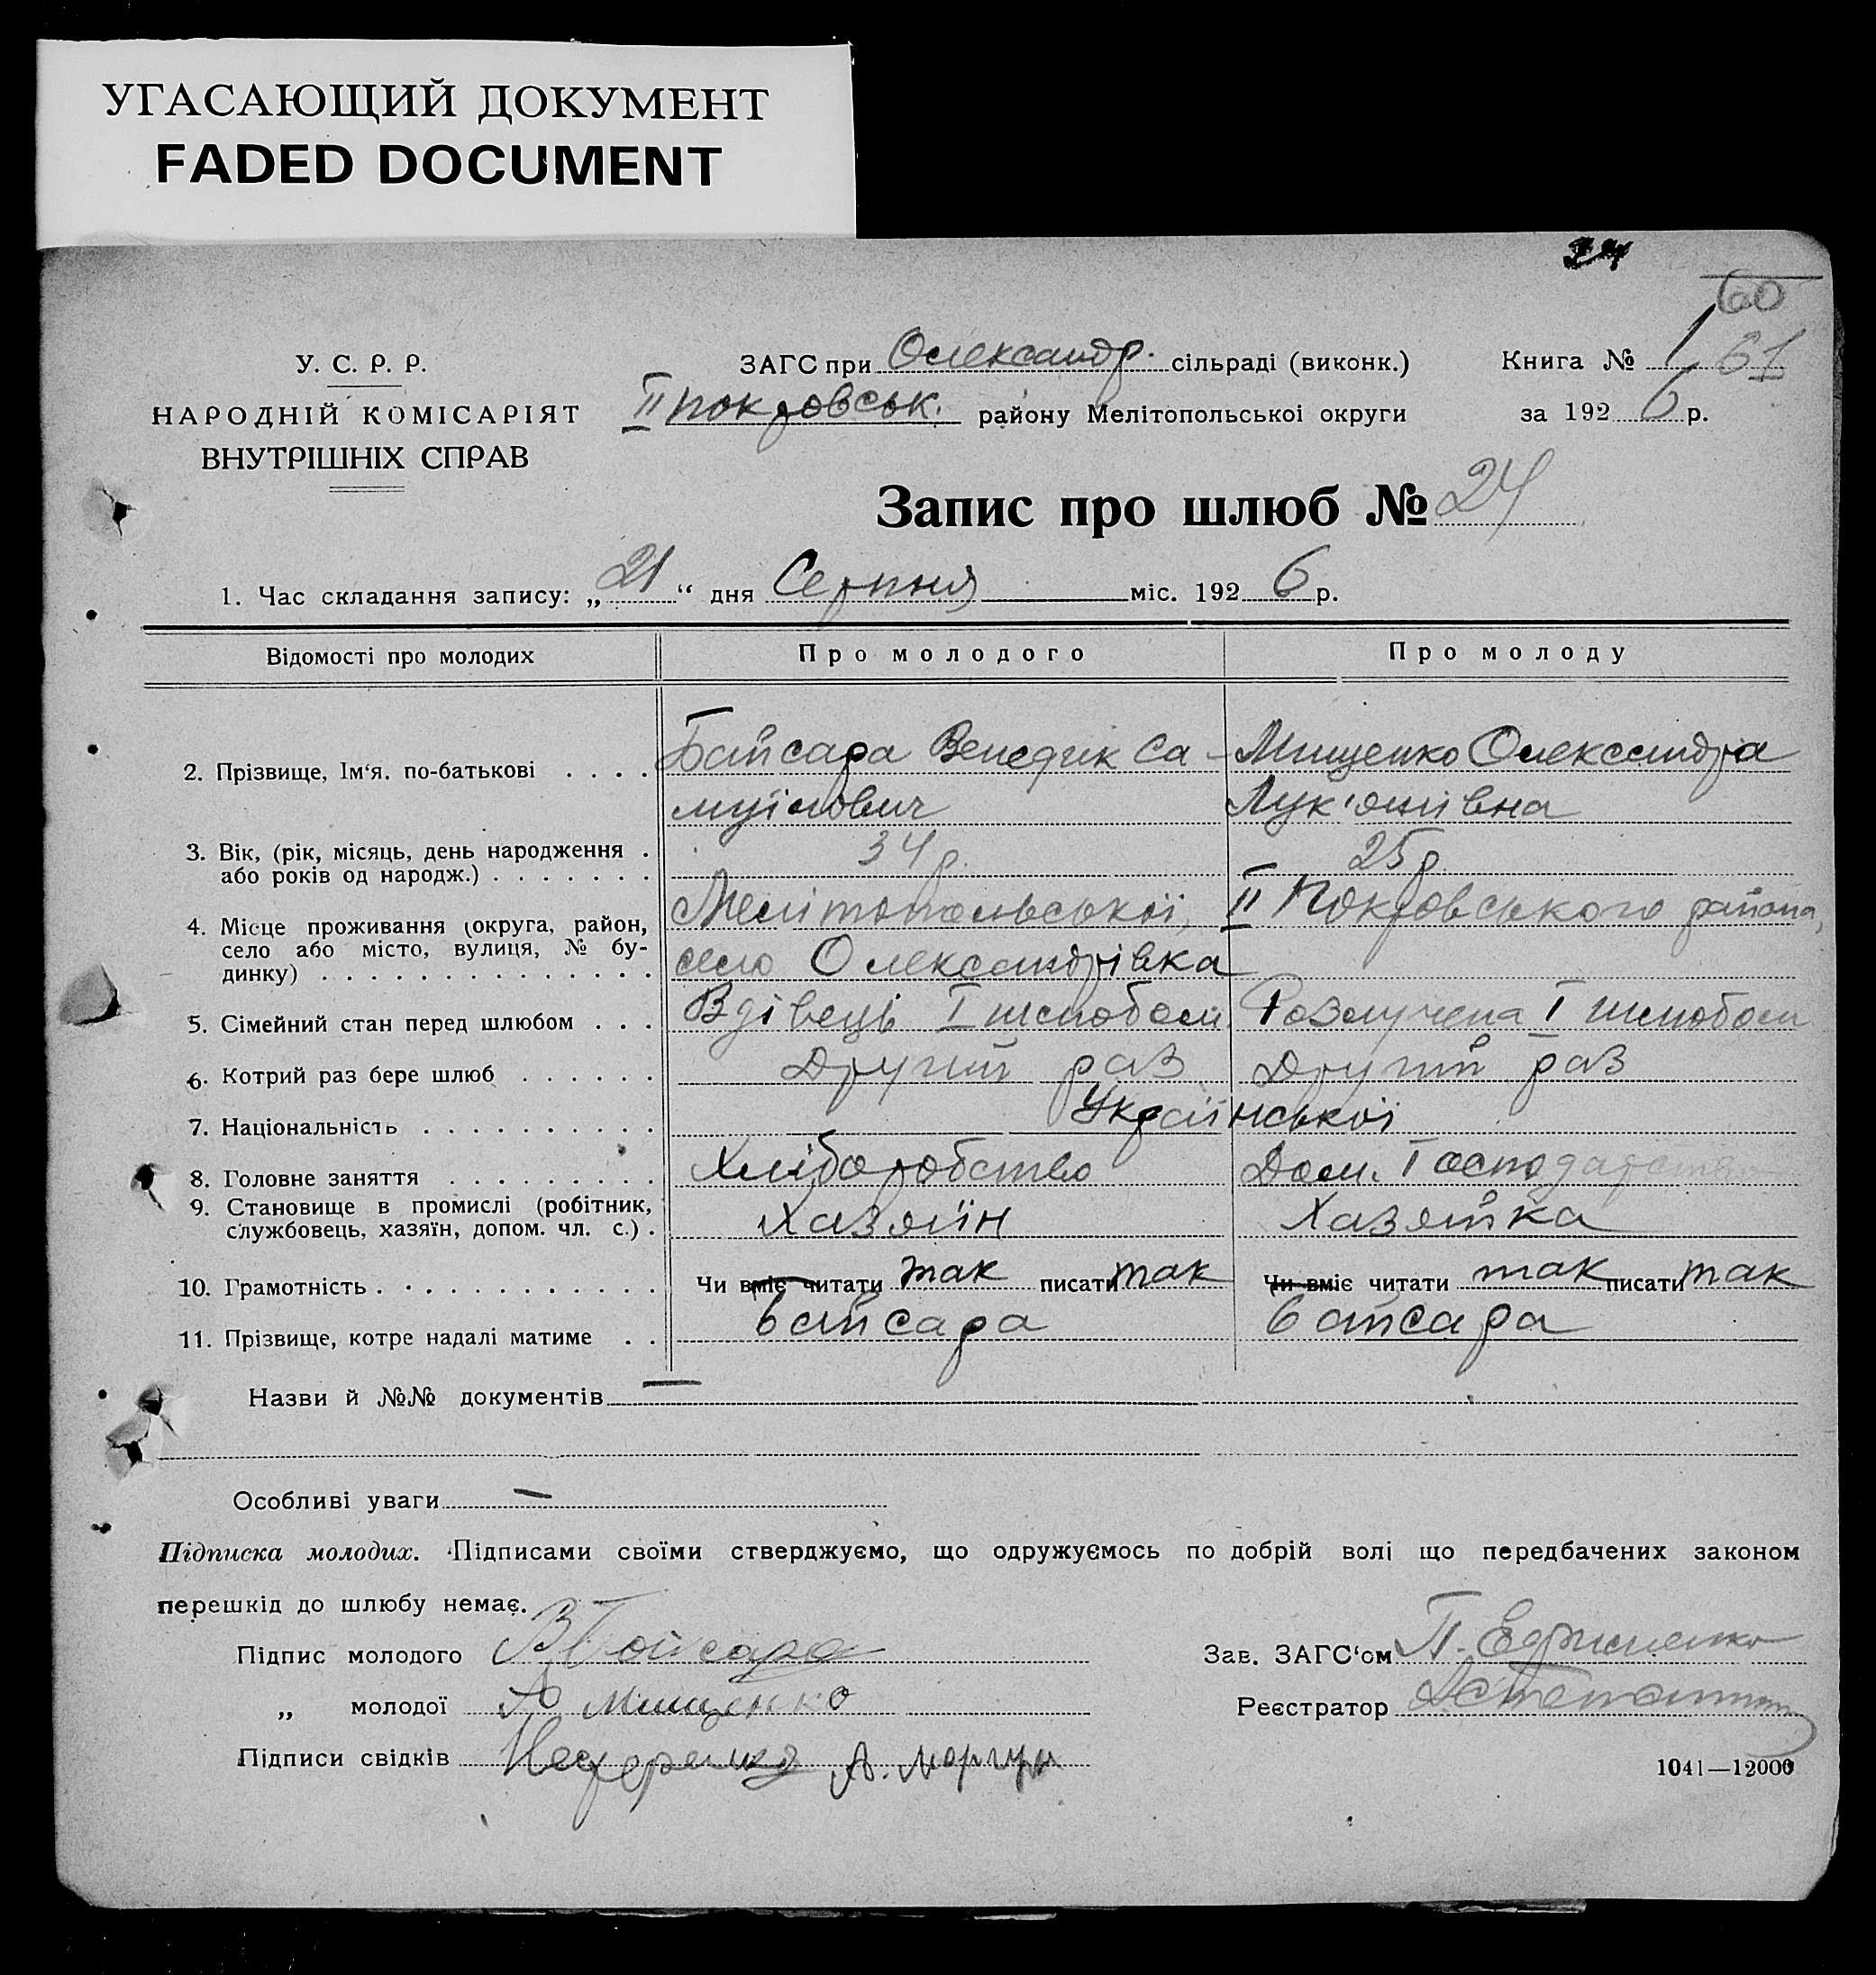 УГАСАЮЩИЙ ДОКУМЕНТ
FADED DOCUMENT
24
60
У. С. Р. Р.
НАРОДНІЙ КОМІСАРІЯТ
ВНУТРІШНІХ СПРАВ
ЗАГС при Олександр. сільраді (виконк.)
II Покровськ. району Мелітопольскої округи
Книга № 1 61
за 1926 р.
Запис про шлюб № 24
1. Час складання запису: „21“ дня Серпня міс. 1926 р.
Відомості про молодих Про молодого Про молоду
2. Прізвище, Ім‘я, по-батькові . . . . Байсара Венедик Са- Мищенко Олександра
муїлович Лук'янівна
3. Вік, (рік, місяць, день народження . 34 р. 25 р.
або років од народж.) . . . . . . .
4. Місце проживання (округа, район, Мелітопольської, II Покровського района,
село або місто, вулиця, № бу- село Олександрівка
динку) . . . . . . . . . . . . . .
5. Сімейний стан перед шлюбом . . . Вдівець I шлюбом Розлучена I шлюбом
6. Котрий раз бере шлюб . . . . . . Другий раз Другий раз
7. Національність . . . . . . . . . . Української
8. Головне заняття . . . . . . . . . Хліборобство Дом. Господарство
9. Становище в промислі (робітник,
службовець, хазяїн, допом. чл. с.) . Хазяїн Хазяйка
10. Грамотність . . . . . . . . . . . . Чи вміє читати так писати так Чи вміє читати так писати так
11. Прізвище, котре надалі матиме . . Байсара Байсара
Назви й №№ документів —
Особливі уваги —
Підписка молодих. Підписами своїми стверджуємо, що одружуємось по добрій волі що передбачених законом
перешкід до шлюбу немає.
Підпис молодого В Байсара
„ молодої А Мищенко
Підписи свідків А. Моргун
Зав. ЗАГС‘ом П. Єфименко
Реєстратор
1041—12000